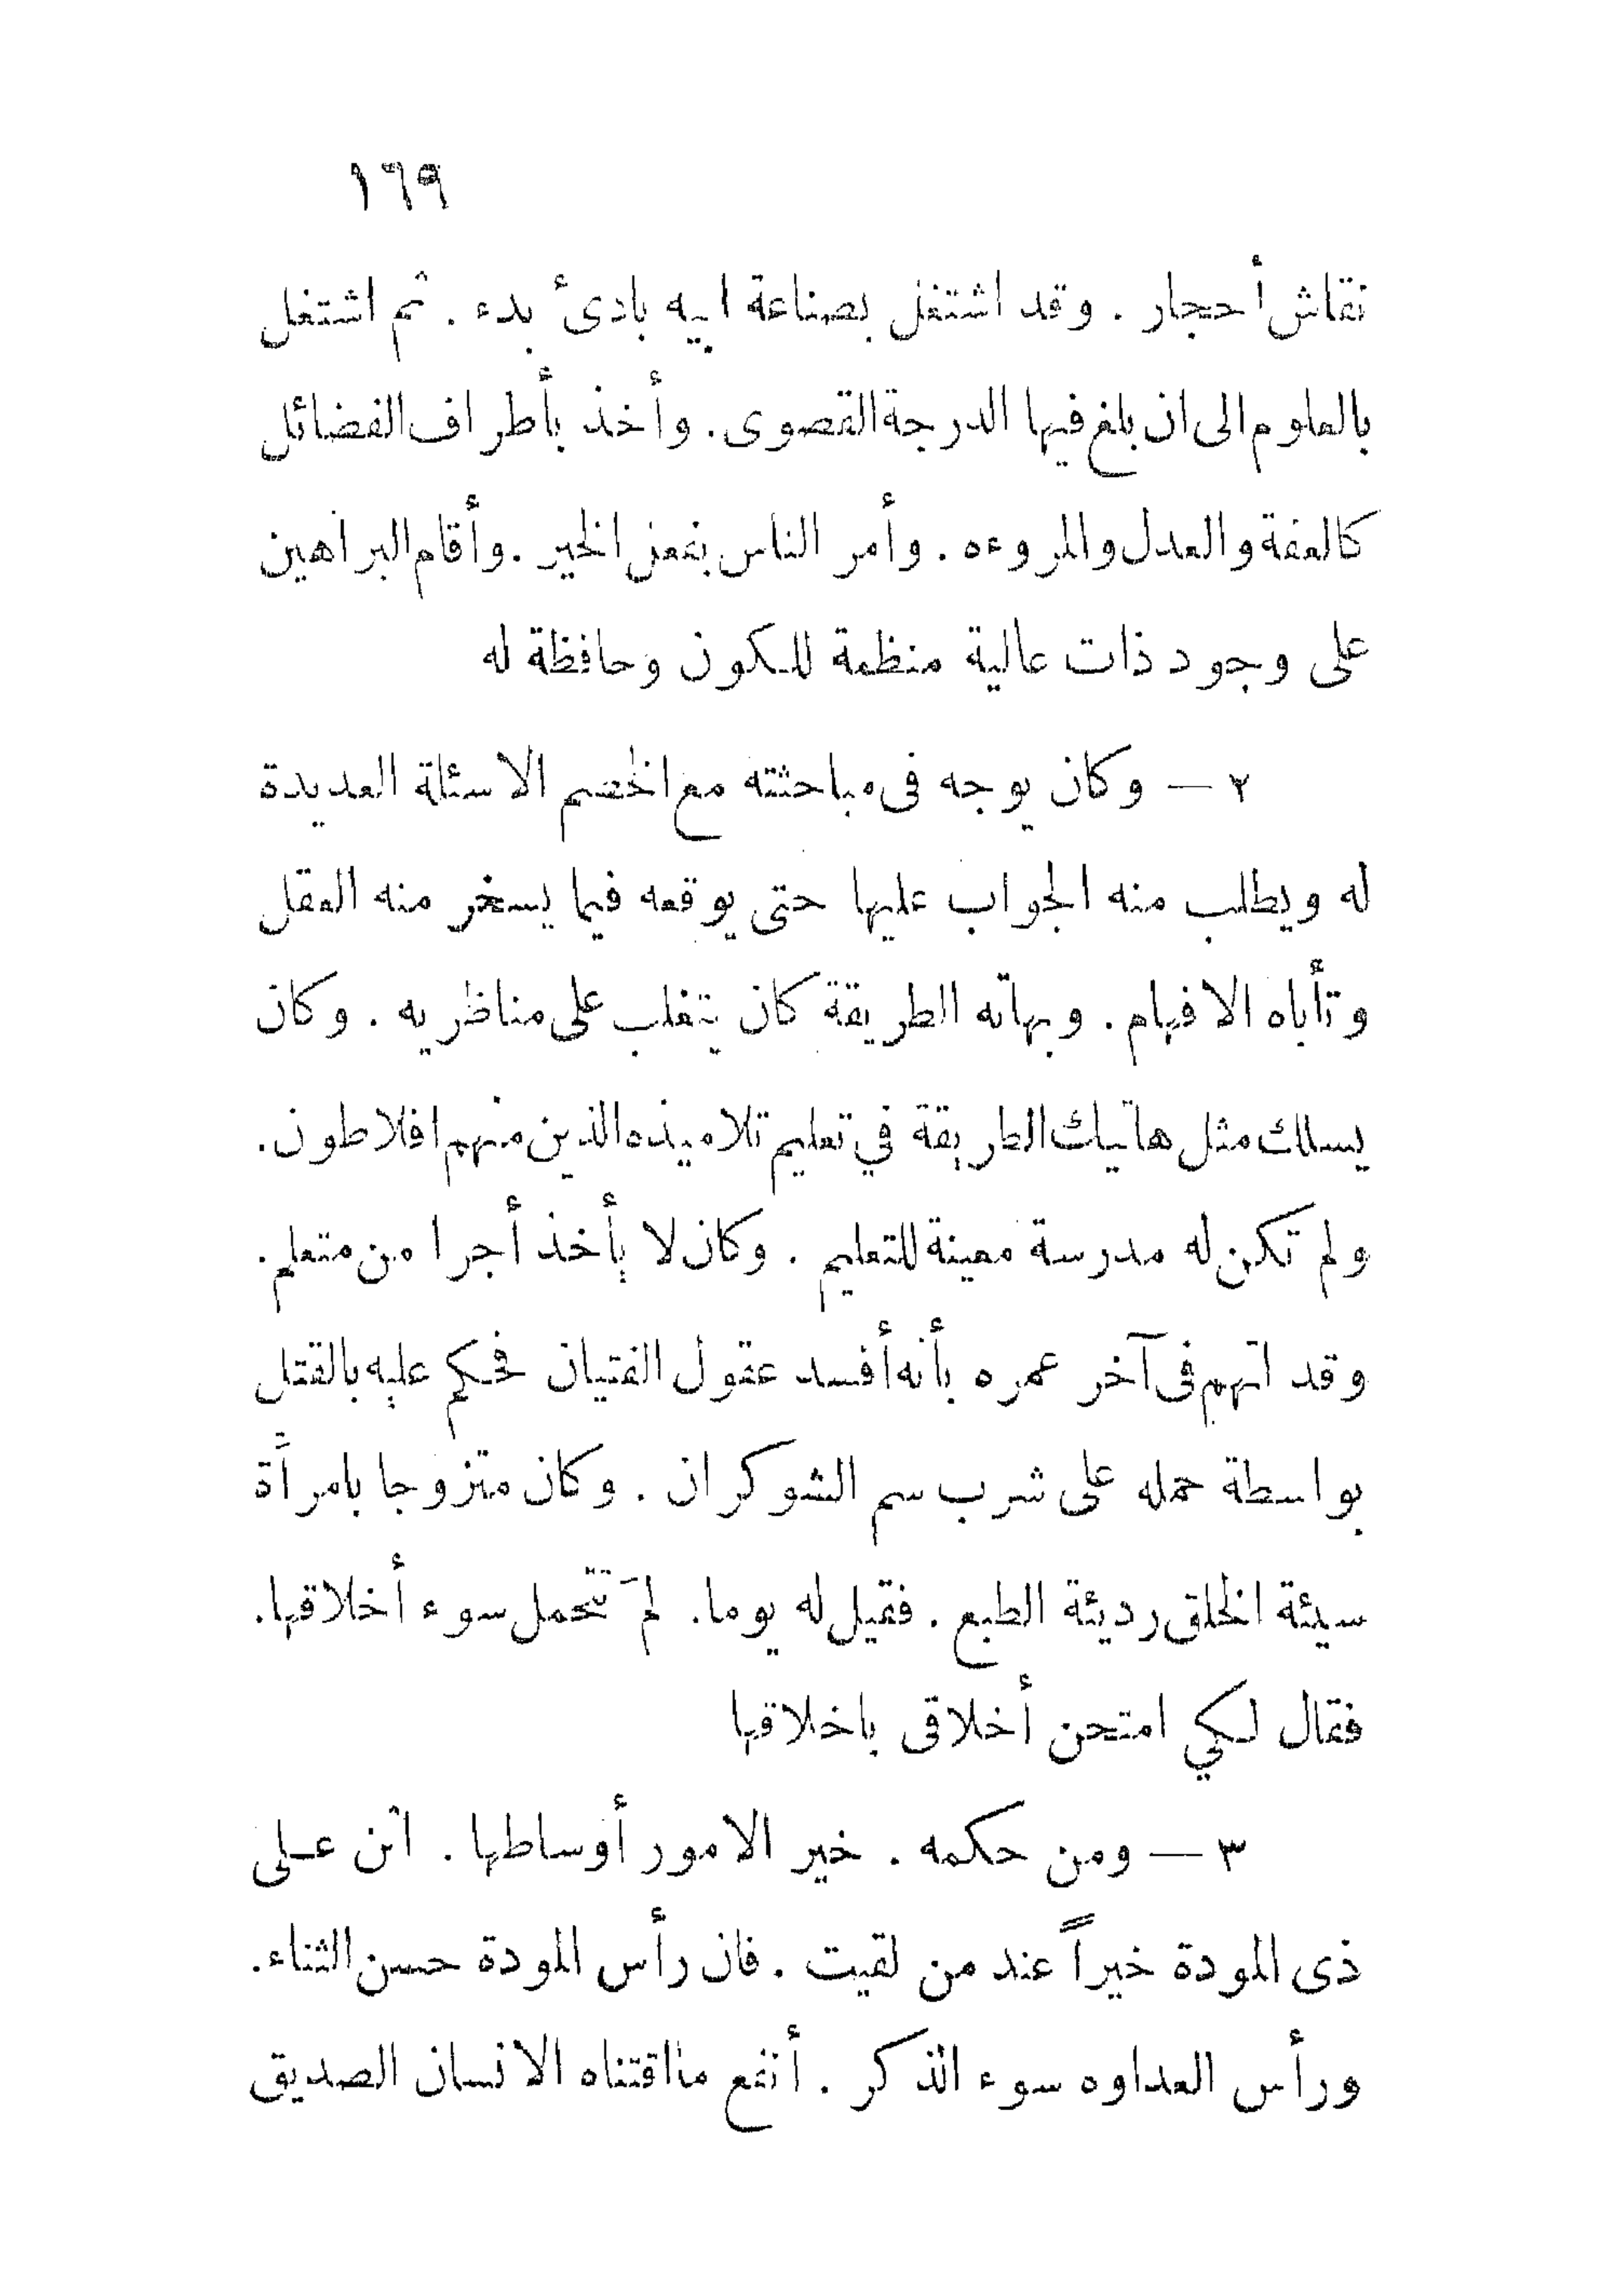 ١٦٩
نقاش أحجار . وقد اشتغل بصناعة ابيه بادئ بدء . ثم اشتغل
بالعلوم الى ان بلغ فيها الدرجة القصوى . وأخذ بأطراف الفضائل
كالعفة والعدل والمروءه . وأمر الناس بفعل الخير . وأقام البراهين
على وجود ذات عالية منظمة للكون وحافظة له
٢ — وكان يوجه فى مباحثته مع الخصم الاسئلة العديدة
له ويطلب منه الجواب عليها حتى يوقعه فيما يسخر منه العقل
وتأباه الافهام . وبهاته الطريقة كان يتغلب على مناظريه . وكان
يسلك مثل هاتيك الطريقة في تعليم تلاميذه الذين منهم افلاطون .
ولم تكن له مدرسة معينة للتعليم . وكان لا يأخذ أجرا من متعلم .
وقد اتهم فى آخر عمره بأنه أفسد عقول الفتيان فحكم عليه بالقتل
بواسطة حمله على شرب سم الشوكران . وكان متزوجا بامرأة
سيئة الخلق رديئة الطبع . فقيل له يوما . لمَ تتحمل سوء أخلاقها .
فقال لكي امتحن أخلاقى باخلاقها
٣ — ومن حكمه . خير الامور أوساطها . اثن على
ذى المودة خيراً عند من لقيت . فان رأس المودة حسن الثناء .
ورأس العداوه سوء الذكر . أنفع ما اقتناه الانسان الصديق